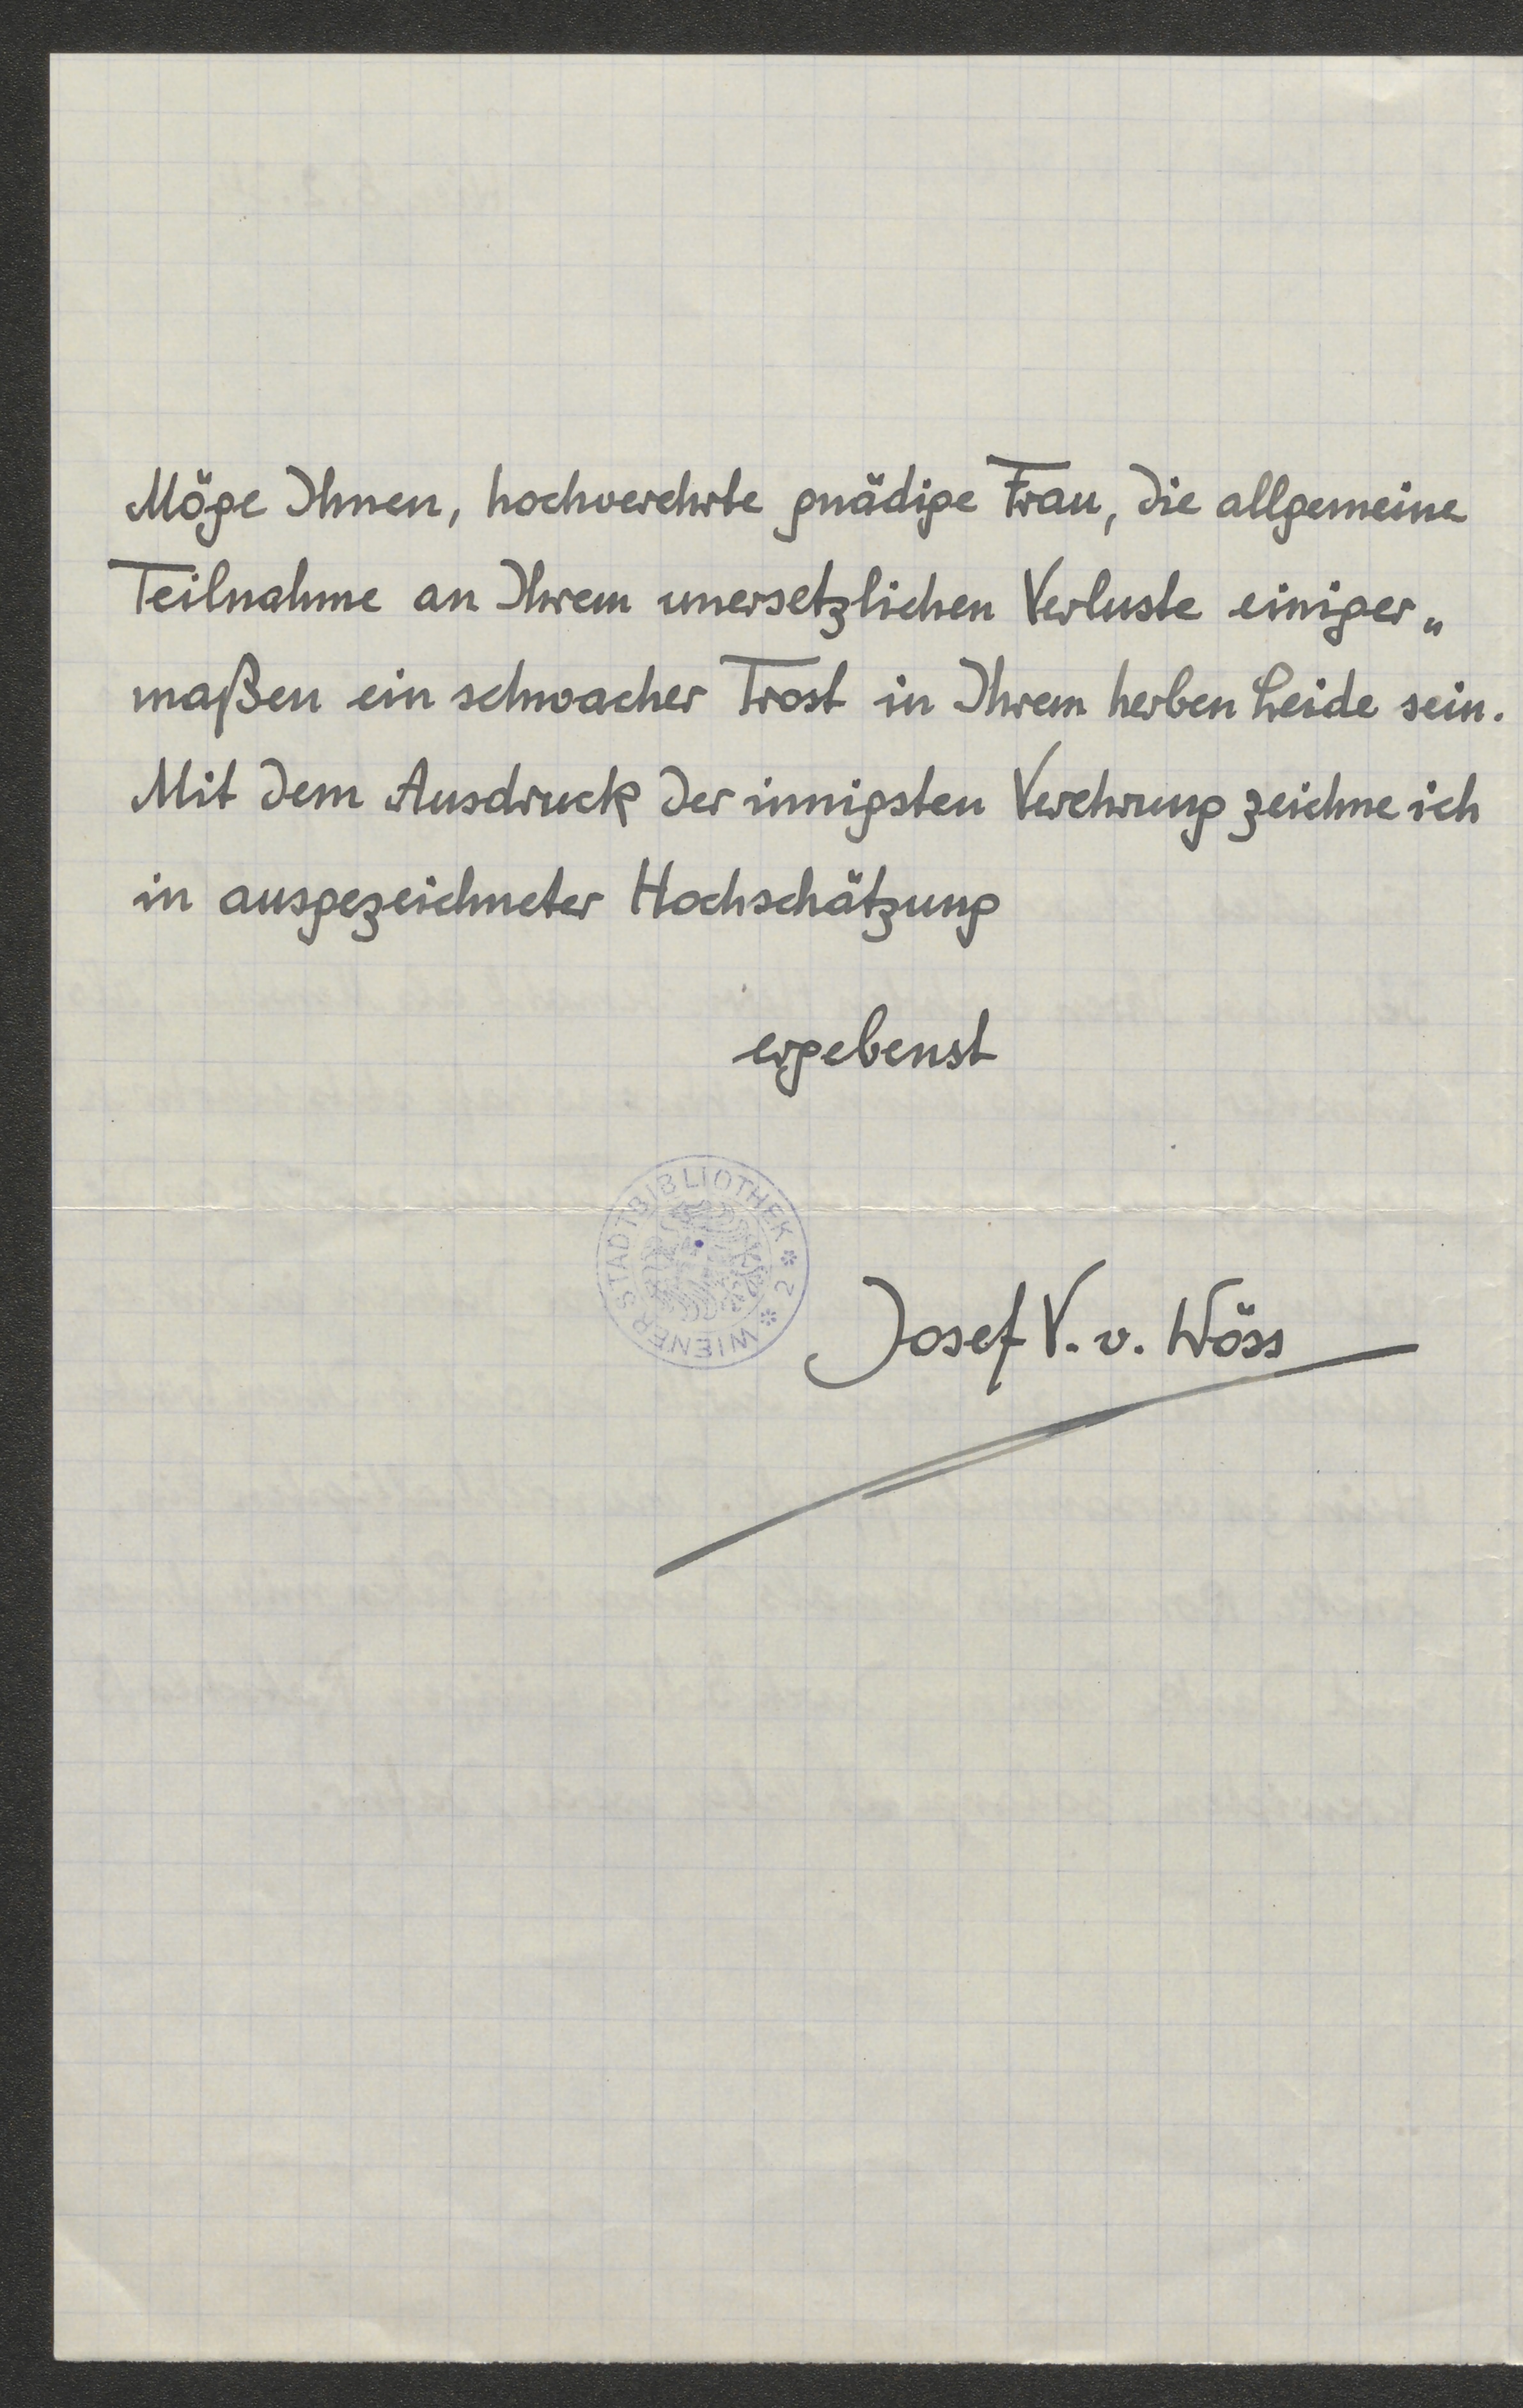 Möge Ihnen, hochverehrte gnädige Frau, die allgemeine
Teilnahme an Ihrem unersetzlichen Verluste einiger„
maßen ein schwacher Trost in Ihrem herben Leide sein.
Mit dem Ausdruck der innigsten Verehrung zeichne ich
in ausgezeichneter Hochschätzung
ergebenst
WIENER STADTBIBLIOTHEK * 2 *
Josef V. v. Wöss